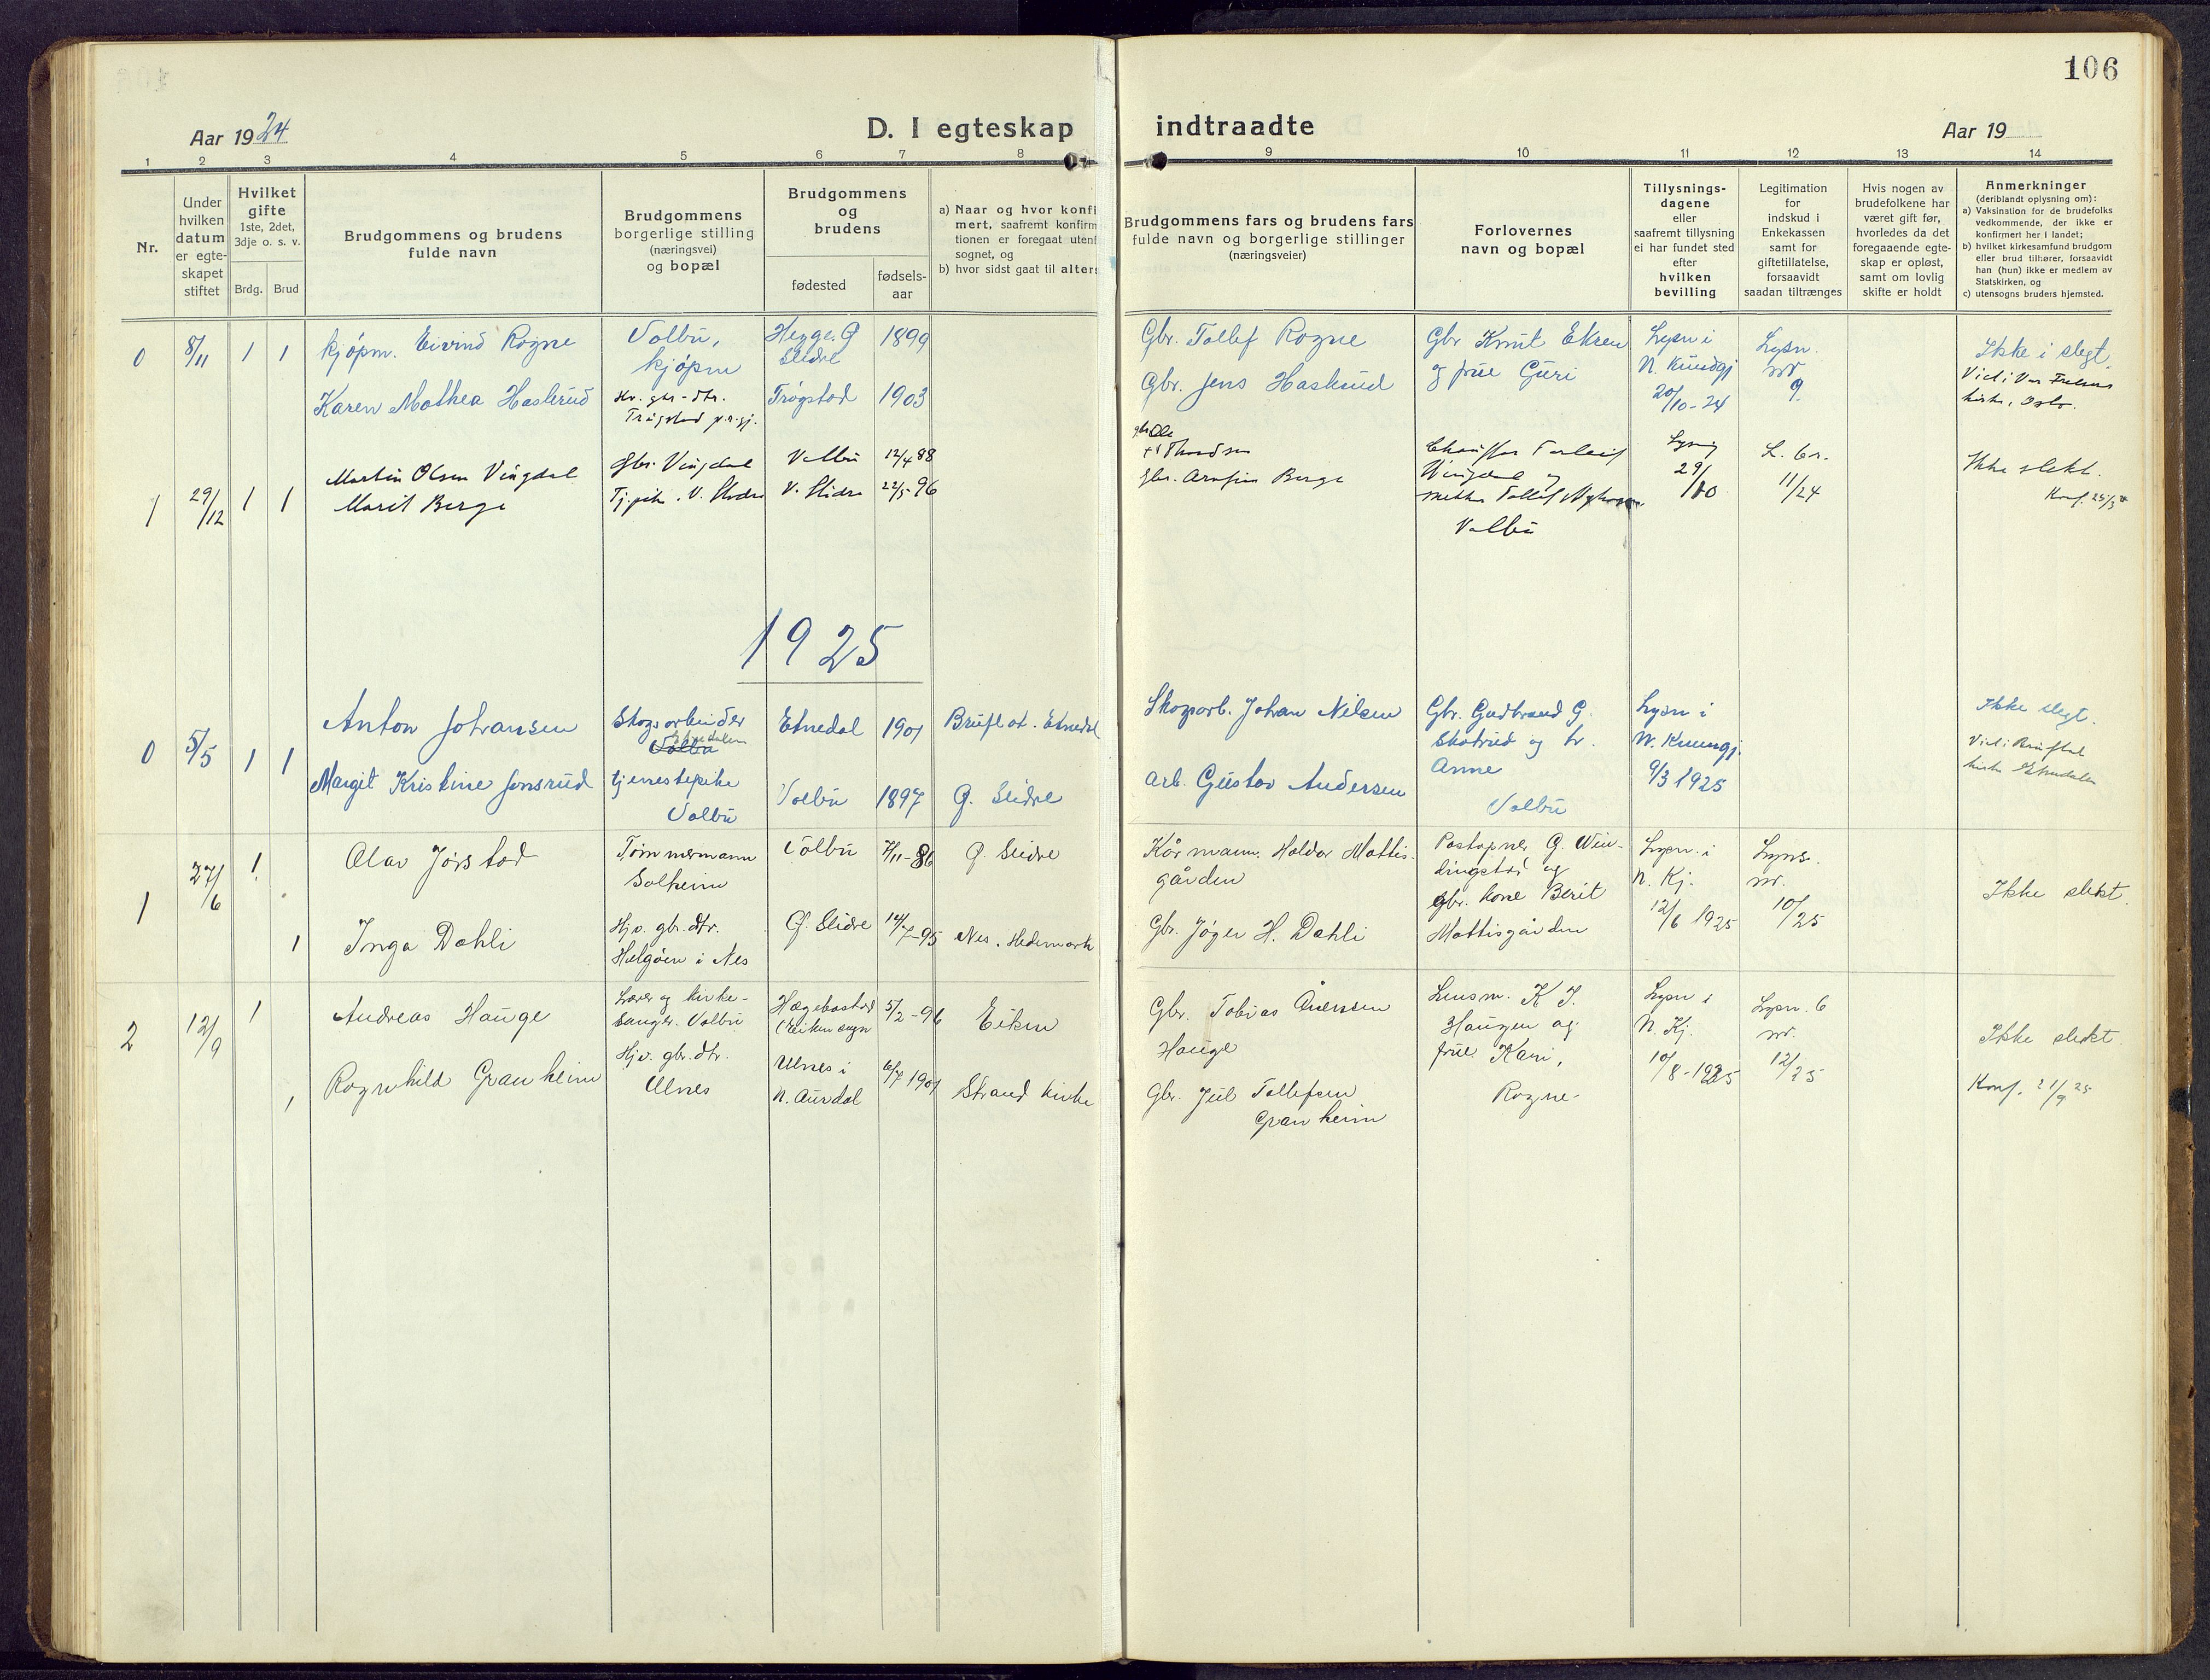 106
Aar 1924
D. I egteskap indtraadte
Aar 19
1 2 3 4 5 6 7 8 9 10 11 12 13 14
Nr.
Under
hvilken
datum
er egte-
skapet
stiftet
Hvilket
gifte
1ste, 2det,
3dje o. s. v.
Brdg. Brud
Brudgommens og brudens
fulde navn
Brudgommens
borgerlige stilling
(næringsvei)
og bopæl
Brudgommens
og
brudens
fødested
fødsels-
aar
a) Naar og hvor konfi
mert, saafremt konfirm
tionen er foregaat utenf
sognet, og
b) hvor sidst gaat til alters
Brudgommens fars og brudens fars
fulde navn og borgerlige stillinger
(næringsveier)
Forlovernes
navn og bopæl
Tillysnings-
dagene
eller
saafremt tillysning
ei har fundet sted
efter
hvilken
bevilling
Legitimation
for
indskud i
Enkekassen
samt for
giftetillatelse,
forsaavidt
saadan tiltrænges
Hvis nogen av
brudefolkene har
været gift før,
hvorledes da det
foregaaende egte-
skap er opløst,
samt om lovlig
skifte er holdt
Anmerkninger
(deriblandt oplysning om):
a) Vaksination for de brudefolks
vedkommende, der ikke er
konfirmert her i landet;
b) hvilket kirkesamfund brudgom
eller brud tilhører, forsaavidt
han (hun) ikke er medlem av
Statskirken, og
c) utensogns bruders hjemsted.
0 8/11 1 1
kjøpm. Eivind Rogne
Karen Mathea Haslerud
Volbu,
kjøpm
gbr-dtr.
Hegge. Ø
Slidre
1899
Trøgstad 1903
Gbr. Tollef Rogne
Gbr. Jens Haslerud
Gbr Knut Eksen
og frue Guri
Lysn i
N. Kundgj
20/10-24
Lysn.
nr
9
Ikke i slegt.
kirke, Oslo.
1 29/12 1 1
Martin Olsen Vingdal
Marit Berge
Gbr. Vingdal
Tj.pike. V. Slidre
Volbu 12/4 88
V. Slidre 22/5-96
gbr Ole
Gbr. Arnfin Berge
Volbu
Lysn
29/10
11/24
Ikke slekt.
1925
0 5/5 1 1
Anton Johansen
Margit Kristine Jonsrud
Skogsarbeider
Etnedalen
Volbu
tjenestepike
Volbu
Etnedal 1901
Volbu 1897
Bruflat. Etnedal
Ø. Slidre
Skogarb. Johan Nilsen
Arb. Gustav Andersen
Gbr. Gudbrand G.
Skotrud og fr.
Anne
Volbu
Lysn i
N. Kunngj.
9/3 1925
Ikke slegt.
Viet i Bruflat
kirke Etnedalen
1 27/6 1 1
Olav Jørstad
Inga Dahli
Tømmermann
Solheim
Hjv. gbr. dtr.
Helgøen i Nes
Volbu 7/11-86
Ø. Slidre 14/7-95
Ø. Slidre
Nes. Hedemark
Kårmann. Haldor Mattis-
gården
Gbr. Jøger H. Dahli
Postopner G. Win-
dingstad og
gbr. kone Berit
Mattisgården
Lysn. i
N. Kj.
12/6 1925
Lysn.
nr.
10/25
Ikke slekt.
2 12/9 1 1
Andreas Hauge
Ragnhild Granheim
Lærer og kirke-
sanger. Volbu
Hjv. gbr. dtr.
Ulnes
Hægebostad
(Eiken sogn
Ulnes i
N. Aurdal
5/2-96
6/7 1901
Eiken
Strand kirke
Gbr. Tobias Ånensen
Hauge
Gbr. Jul Tollefsen
Granheim
Lensm. K J.
Haugen og
frue Kari,
Rogne.
Lysn i
N. Kj.
10/8-1925
Lysn. 6
nr.
12/25
Ikke slekt.
Konf. 21/9 25